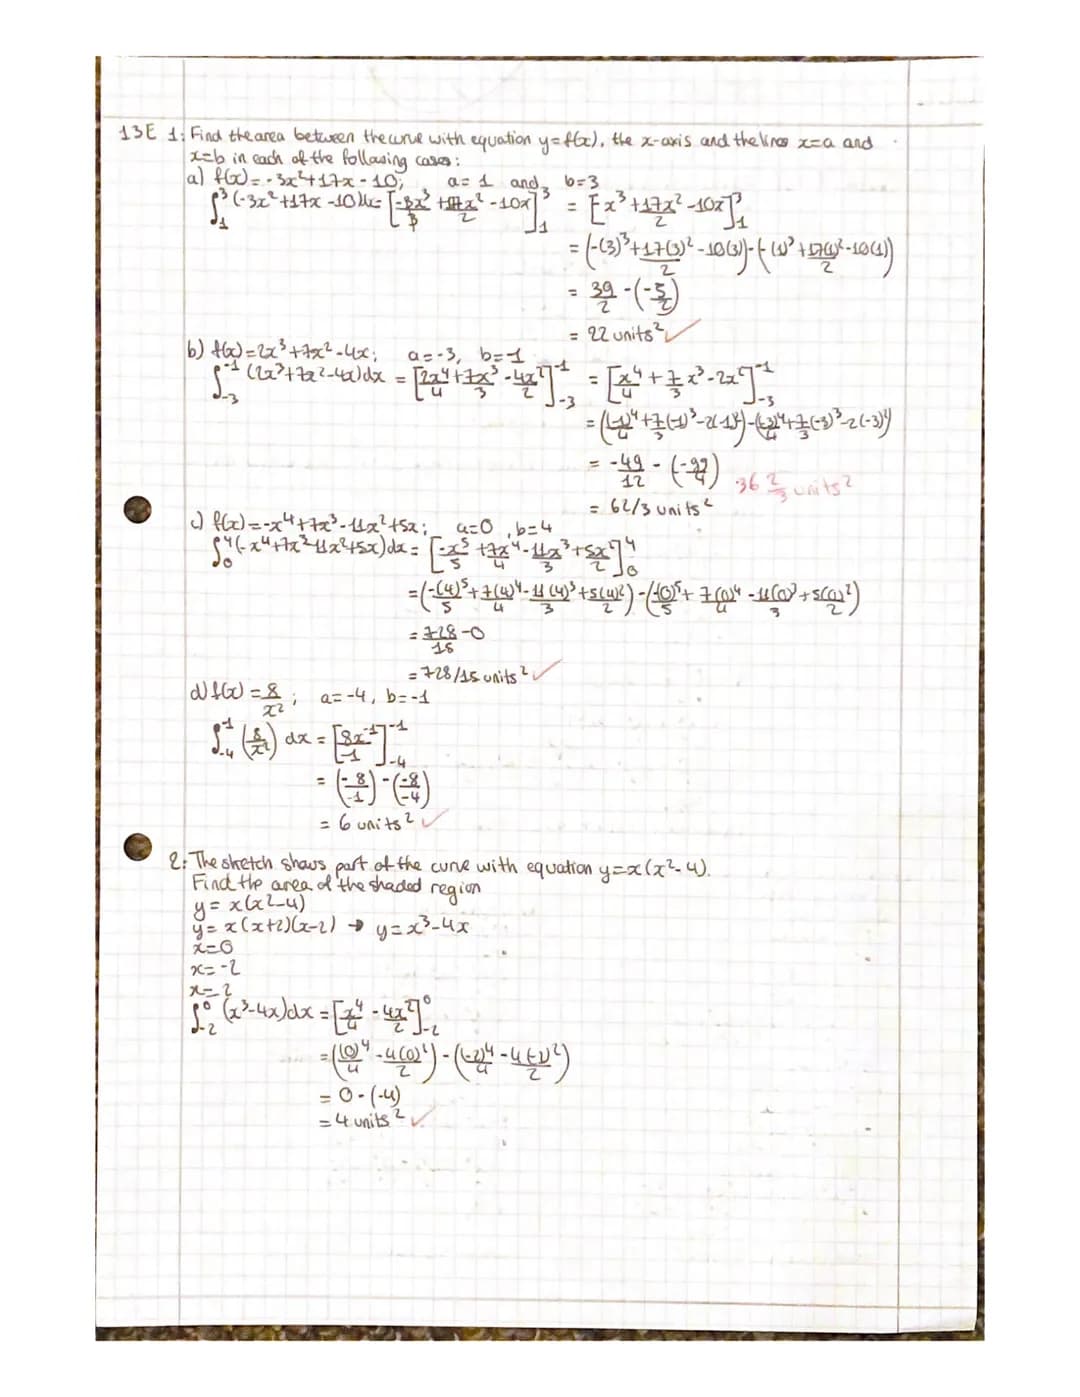 13E 1: Find the area between the curve with equation y=f(x), the x-axis and the lines x=a and
x=b in each of the following cases:
a) f(x) = -3x²+17x-10; a=1 and b=3
∫₁³(-3x²+17x-10)dx = [-3x³/3 + 17x²/2 - 10x]₁³ = [-x³+17x²/2-10x]₁³
= (-(3)³+17(3)²/2-10(3))-(-(1)³+17(1)²/2-10(1))
= 39/2 -(-5/2)
= 22 units² ✓
b) f(x)=2x³+7x²-4x; a=-3, b=-1
∫₋₃⁻¹ (2x³+7x²-4x)dx = [2x⁴/4+7x³/3-4x²/2]₋₃⁻¹ = [x⁴/4+7/3x³-2x²]₋₃⁻¹
= ((-1)⁴/4+7/3(-1)³-2(-1)²)-((-3)⁴/4+7/3(-3)³-2(-3)²)
= -49/12 - (-99/4) 36 2/3 units²
= 62/3 units²
c) f(x)=-x⁴+7x³-11x²+5x; a=0, b=4
∫₀⁴(-x⁴+7x³-11x²+5x)dx = [-x⁵/5+7x⁴/4-11x³/3+5x²/2]₀⁴
=(-(4)⁵/5+7(4)⁴/4-11(4)³/3+5(4)²/2)-(-(0)⁵/5+7(0)⁴/4-11(0)³/3+5(0)²/2)
= 728/15 -0
= 728/15 units² ✓
d) f(x) = 8/x²; a=-4, b=-1
∫₋₄⁻¹ (8/x²) dx = [8x⁻¹/-1]₋₄⁻¹
= (-8/-1)-(-8/-4)
= 6 units² ✓
2: The sketch shows part of the curve with equation y=x(x²-4).
Find the area of the shaded region
y= x(x²-4)
y= x(x+2)(x-2) → y=x³-4x
x=0
x=-2
x=2
∫₋₂⁰ (x³-4x)dx = [x⁴/4 - 4x²/2]₋₂⁰
=((0)⁴/4-4(0)²/2)-((-2)⁴/4-4(-2)²/2)
= 0-(-4)
= 4 units² ✓